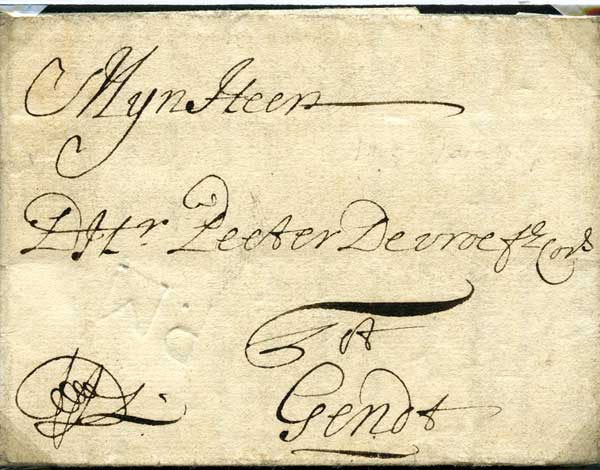 Myn Heer
D Hr Peeter De vroe fs Cors
Tot
Gendt